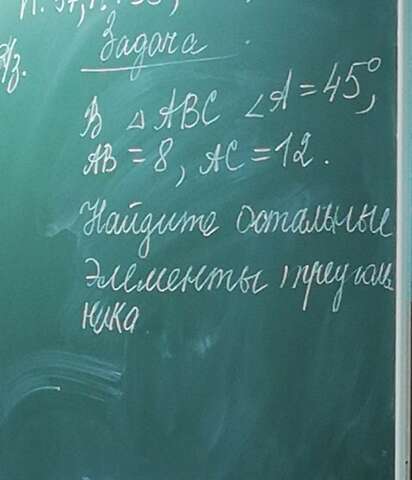 Д/з.
Задача
В △ ABC ∠A = 45°,
AB = 8, AC = 12.
Найдите остальные
элементы треуголь
ника